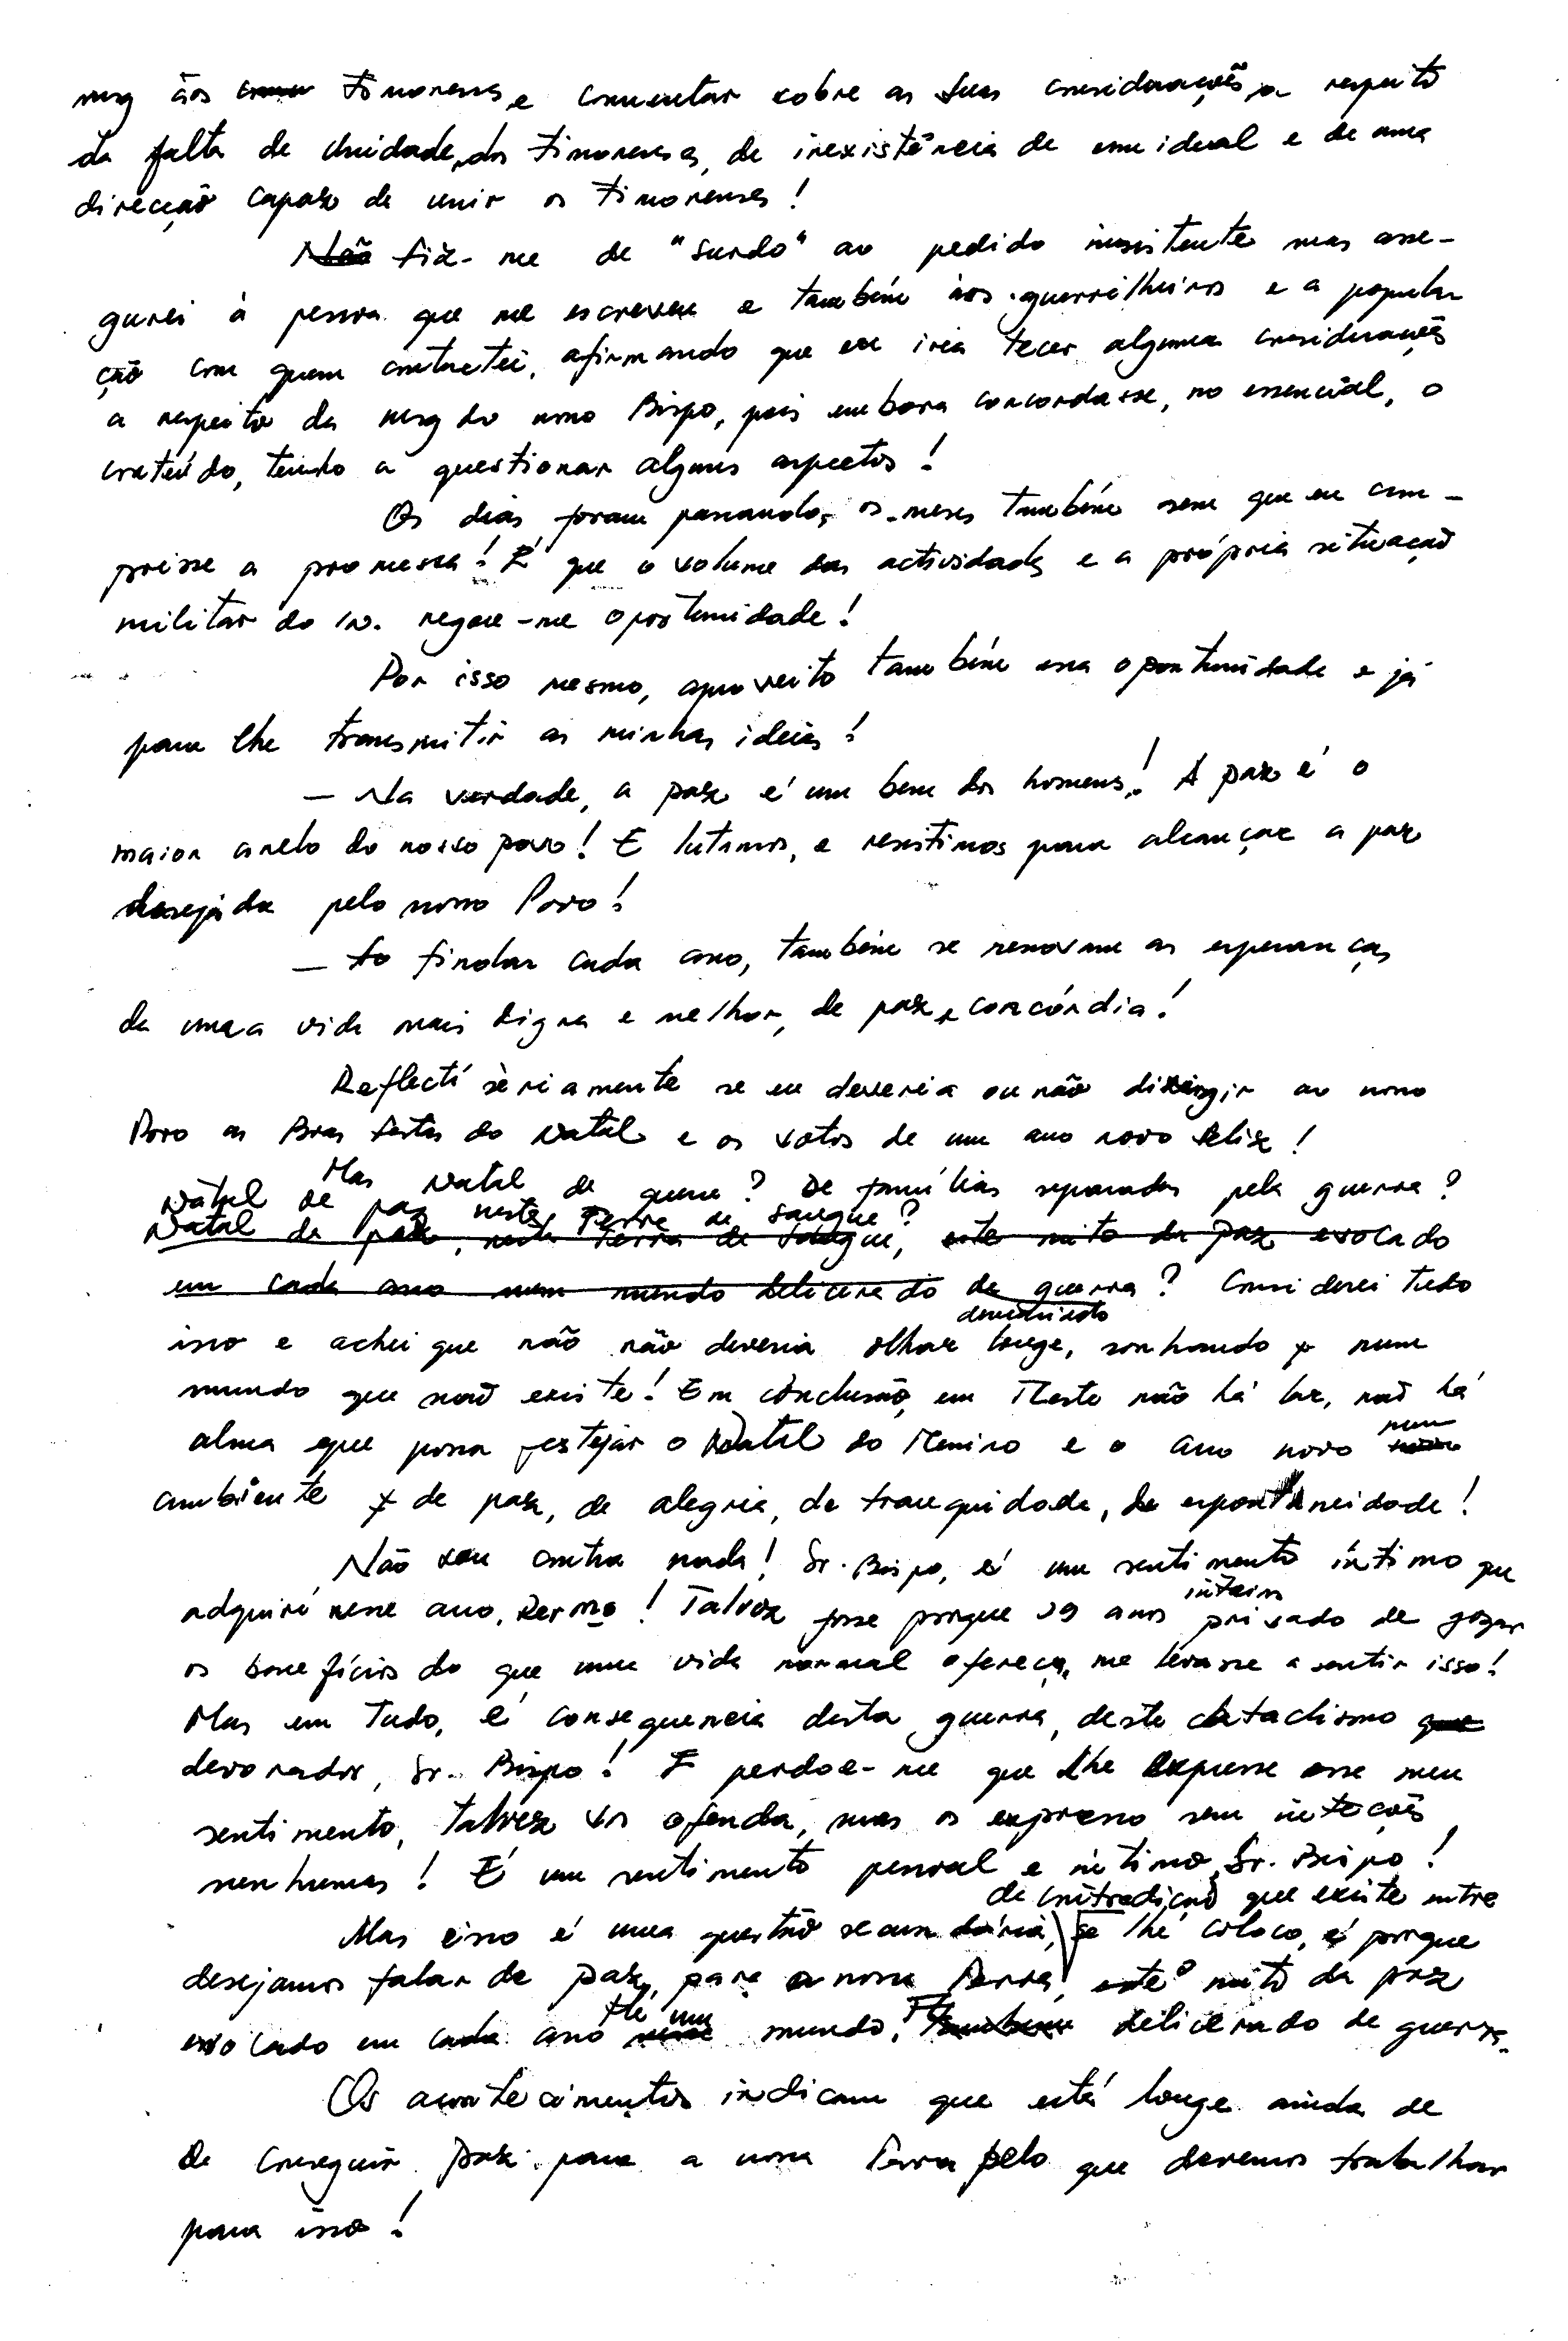 msg aos timorenses, e comentar sobre as suas considerações, a respeito
da falta de Unidade, dos timorenses, de inexistência de um ideal e de uma
direcção capaz de unir os timorenses!
Não fiz-me de "surdo" ao pedido insistente mas asse-
gurei à pessoa que me escreveu e também aos guerrilheiros e a popula
ção com quem contactei, afirmando que eu iria tecer algumas considerações
a respeito da msg do nosso Bispo, pois embora concordasse, no essencial, o
conteúdo, tendo a questionar alguns aspectos!
Os dias foram passando, os meses também sem que eu cum-
prisse a promessa! É que o volume das actividades e a própria situação
militar do in. negou-me oportunidade!
Por isso mesmo, aproveito também essa oportunidade e já
para lhe transmitir as minhas ideias!
— Na verdade, a paz é um bem dos homens! A paz é o
maior anelo do nosso povo! E lutamos, e resistimos para alcançar a paz
desejada pelo nosso Povo!
— Ao findar cada ano, também se renovam as esperanças
de uma vida mais digna e melhor, de paz e concórdia!
Reflectí sèriamente se eu deveria ou não dirigir ao nosso
Povo as Boas Festas do Natal e os votos de um ano novo feliz!
Mas Natal de quem? De famílias separadas pela guerra?
Natal de paz nesta Terra de sangue?
Natal de paz, nesta Terra de sangue, este mito da paz evocado
em cada ano num mundo delicerado de guerra? Considerei tudo
demasiado
isso e achei que não não deveria olhar longe, sonhando num
mundo que não existe! Em conclusão, em Leste não há lar, não há
alma que possa festejar o Natal do Menino e o ano novo num
ambiente de paz, de alegria, de tranquidade, de espontaneidade!
Não sou contra nada! Sr. Bispo, é um sentimento íntimo que
inteiros
adquirí nesse ano, Rermo! Talvez fosse porque 19 anos privado de gozar
os benefícios do que uma vida normal ofereça, me levasse a sentir isso!
Mas em tudo, é consequencia desta guerra, deste cataclismo que
devorador, Sr. Bispo! E perdoe-me que lhe expresse esse meu
sentimento, talvez vos ofenda, mas os expresso sem intecões
nenhumas! É um sentimento pessoal e íntimo, Sr. Bispo!
de contradição que existe entre
Mas isso é uma questão secundária, se lhe coloco, é porque
desejamos falar de paz, para a nossa Terra, este o mito da paz
evocado em cada ano e um mundo, também delicerado de guerra.
Os acontecimentos indicam que está longe ainda de
de conseguir paz para a nossa Terra pelo que devemos trabalhar
para isso!